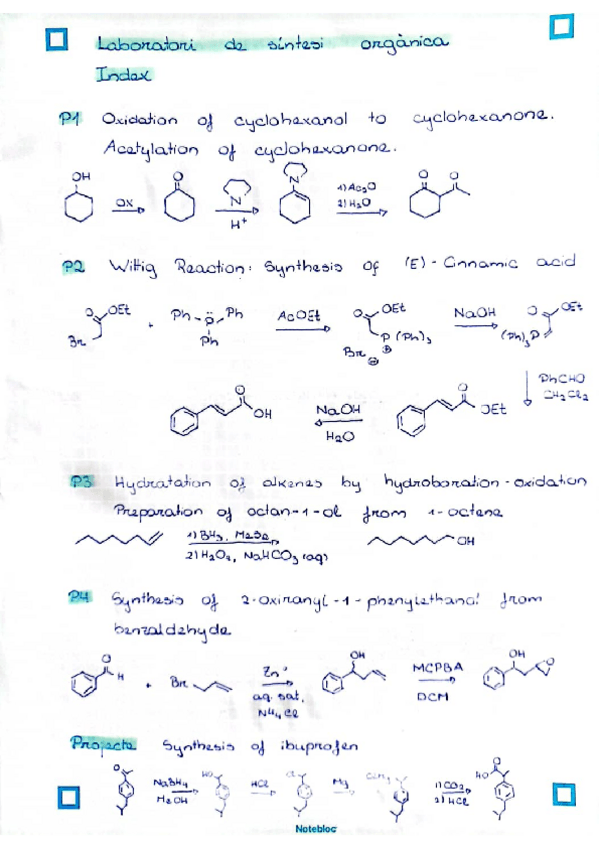 Laboratori de síntesi orgànica
Index
P1 Oxidation of cyclohexanol to cyclohexanone.
Acetylation of cyclohexanone.
OH O N O O
OX N H+ 1) Ac2O
2) H2O
P2 Wittig Reaction: Synthesis of (E)-Cinnamic acid
O OEt + Ph-P-Ph AcOEt O OEt NaOH O OEt
Br Ph P(Ph)3 (Ph)3P
Br⊖ ⊕
PhCHO
CH2Cl2
O OH NaOH O OEt
H2O
P3 Hydratation of alkenes by hydroboration-oxidation
Preparation of octan-1-ol from 1-octene
1) BH3, Me2S OH
2) H2O2, NaHCO3 (aq)
P4 Synthesis of 2-oxiranyl-1-phenylethanol from
benzaldehyde
O H + Br Zn OH MCPBA OH O
aq. sat. DCM
NH4Cl
Projecte Synthesis of ibuprofen
O NaBH4 HO HCl Cl Mg ClMg 1) CO2 HO O
MeOH 2) HCl
Notebloc